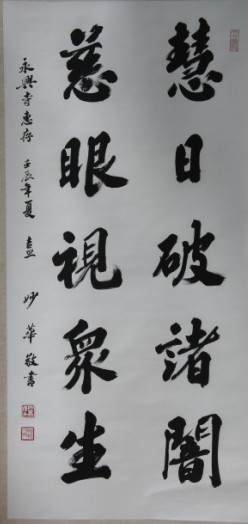 慧日破諸闇
慈眼視衆生
永興寺惠存 壬辰年夏 妙華敬書